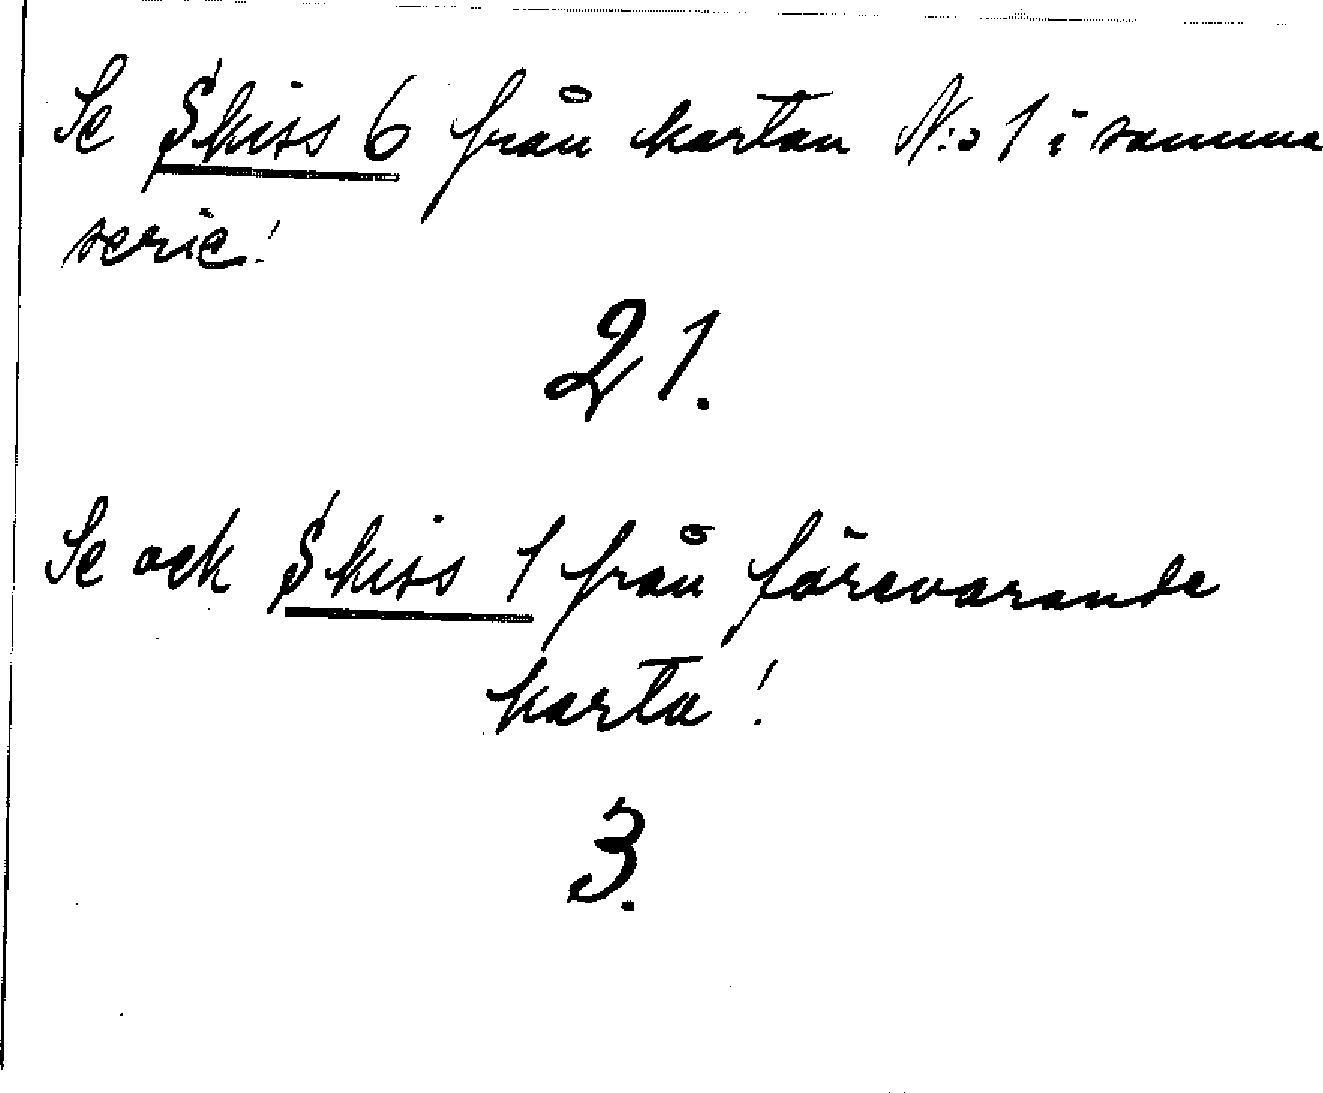 Se Skiss 6 från kartan N:o 1 i samma
serie!
21.
Se ock Skiss 1 från förevarande
karta!
3.